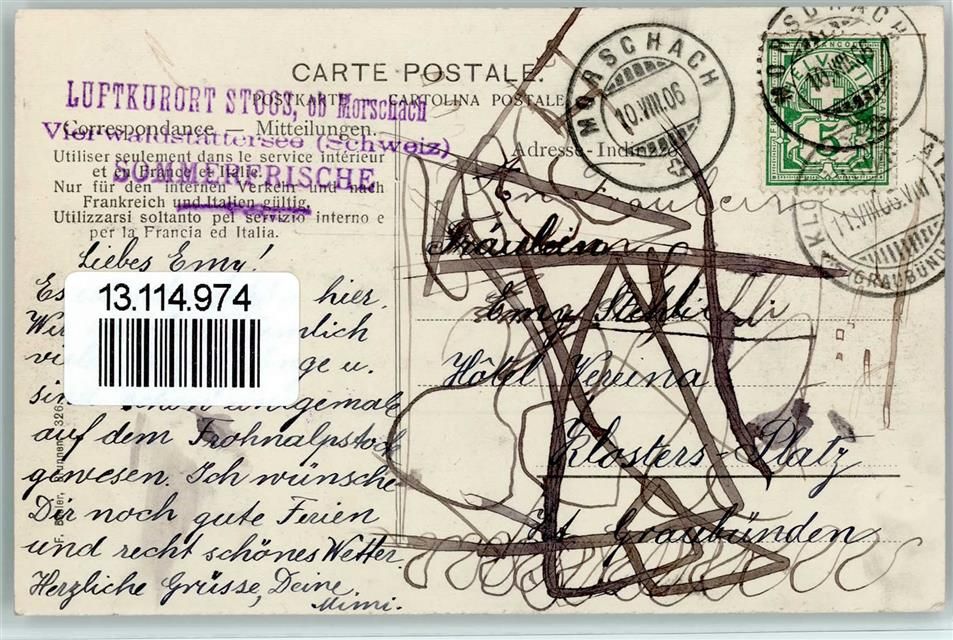 CARTE POSTALE.
POSTKARTE CARTOLINA POSTALE
LUFTKURORT STOOS, ob Morschach
Correspondance — Mitteilungen.
Vierwaldstättersee (Schweiz)
Utiliser seulement dans le service intérieur
et en France et Italie.
SOMMERFRISCHE
Nur für den internen Verkehr und nach
Frankreich und Italien gültig.
Utilizzarsi soltanto per servizio interno e
per la Francia ed Italia.
Liebes Emy!
Es hier.
Wir
vi u.
sin schon einigemale
auf dem Frohnalpstock
gewesen. Ich wünsche
Dir noch gute Ferien
und recht schönes Wetter.
Herzliche Grüsse, Deine
Mimi.
13.114.974
Brunnen 326
Adresse - Indirizzo
Fräulein
Emy Stehli
Hôtel Vereina
Klosters-Platz
Kt. Graubünden
MORSCHACH
10.VIII.06
MORSCHACH
10.VIII.06
FRANCO
HELVETIA
5
KLOSTERS PLATZ
11.VIII.06
(GRAUBÜND